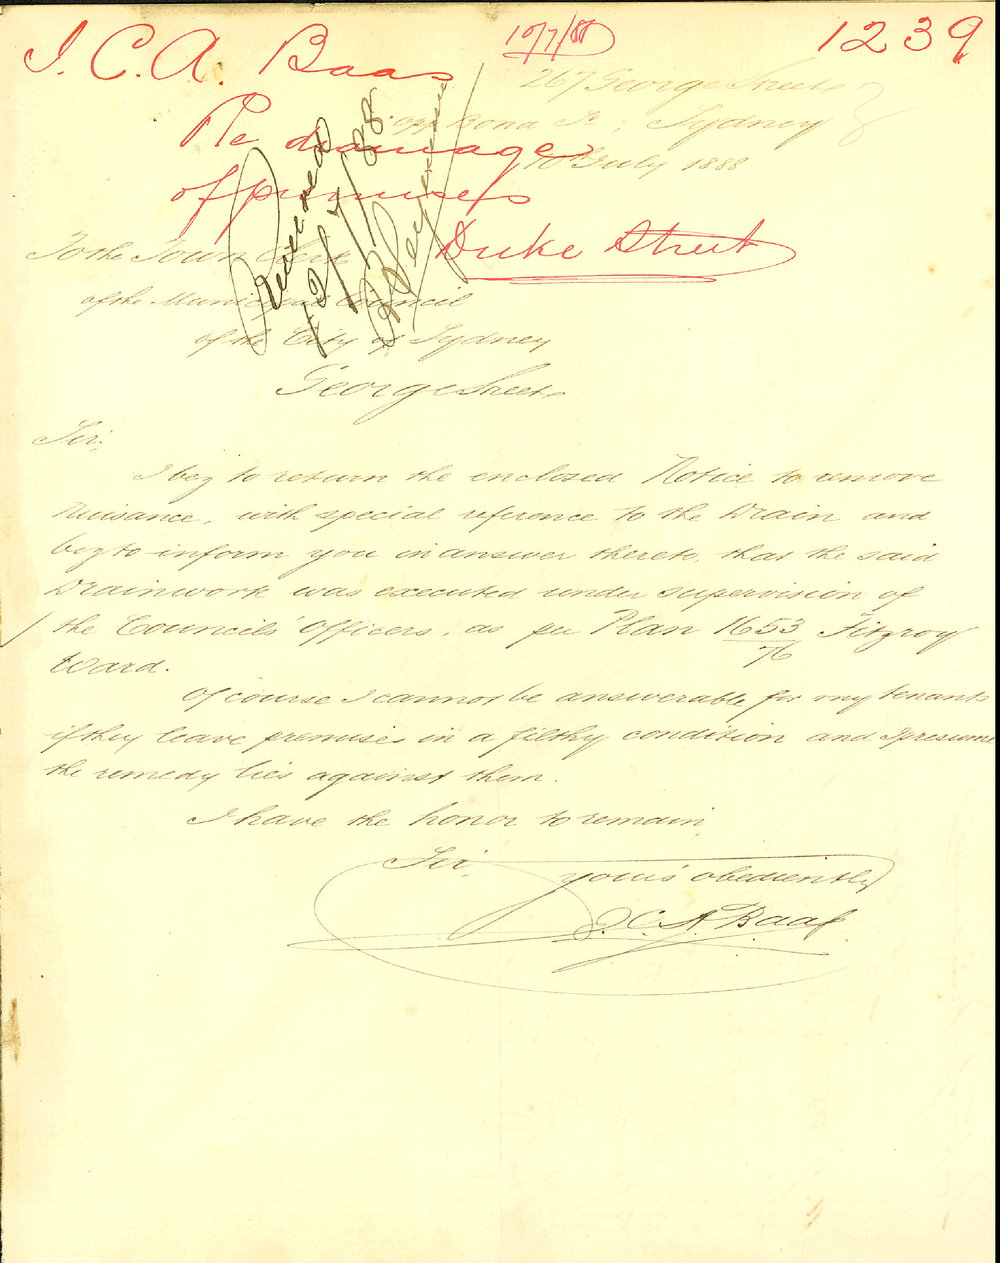 10/7/88
1239
J. C. A. Baas
Re drainage
of premises
Duke Street
Received
12/7/88
267 George Street
opp Bond St, Sydney
10th July 1888
To the Town Clerk
of the Municipal Council
of the City of Sydney
George Street
Sir,
I beg to return the enclosed Notice to remove
Nuisance, with special reference to the Drain and
beg to inform you in answer thereto, that the said
Drainwork was executed under supervision of
the Councils' Officers, as per Plan 1653/76 Fitzroy
Ward.
Of course I cannot be answerable for my tenants
if they leave premises in a filthy condition and I presume
the remedy lies against them.
I have the honor to remain,
Sir,
yours obediently
J. C. A. Baas